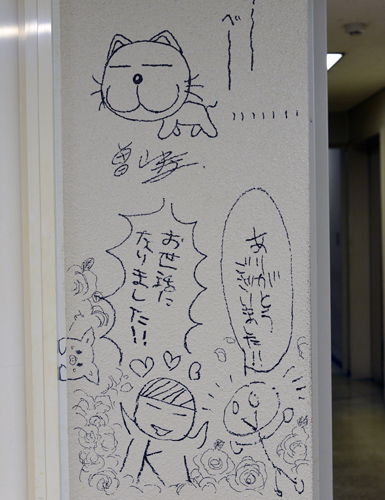 べーー
お世話に
なりました!!
ありがとう
ございました!!